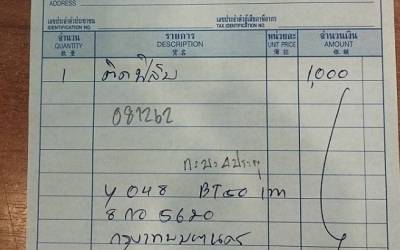 ADDRESS
เลขประจำตัวประชาชน เลขประจำตัวผู้เสียภาษีอากร
IDENTIFICATION NO. TAX IDENTIFICATION NO.
จำนวน รายการ หน่วยละ จำนวนเงิน
QUANTITY DESCRIPTION UNIT PRICE AMOUNT
數量 貨名
1 ติดฟิล์ม 1,000
081262
กะบะ 4 ประตู
BT50
8 กอ 5620
กรุงเทพมหานคร